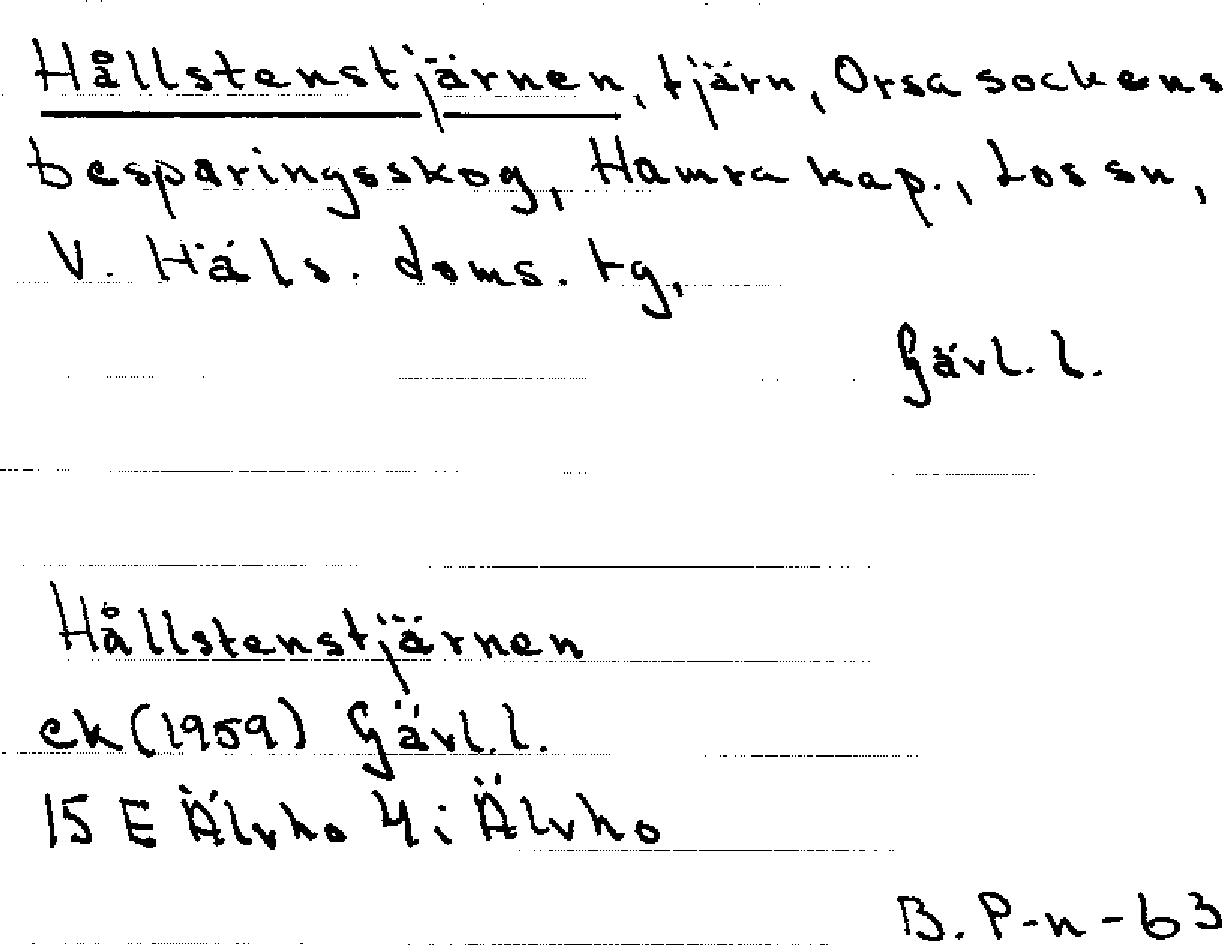 Hållstenstjärnen, tjärn, Orsa sockens
besparingsskog, Hamra kap., Los sn,
V. Häls. doms. tg,
Gävl. l.
Hållstenstjärnen
ek (1959) Gävl. l.
15 E Älvho 4 i Älvho
B. P-n-63